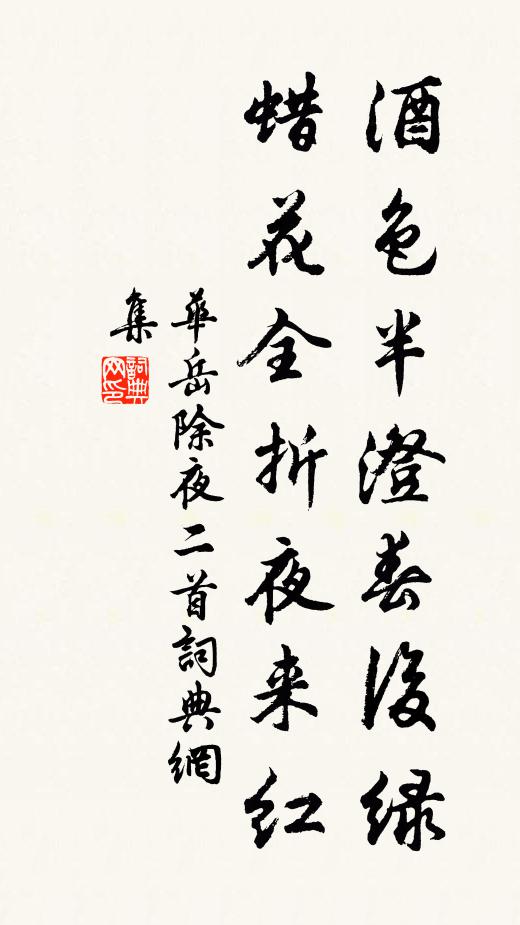 酒色半澄春後绿
蜡花全折夜来红
華岳除夜二首詞典網
集
詞典网印